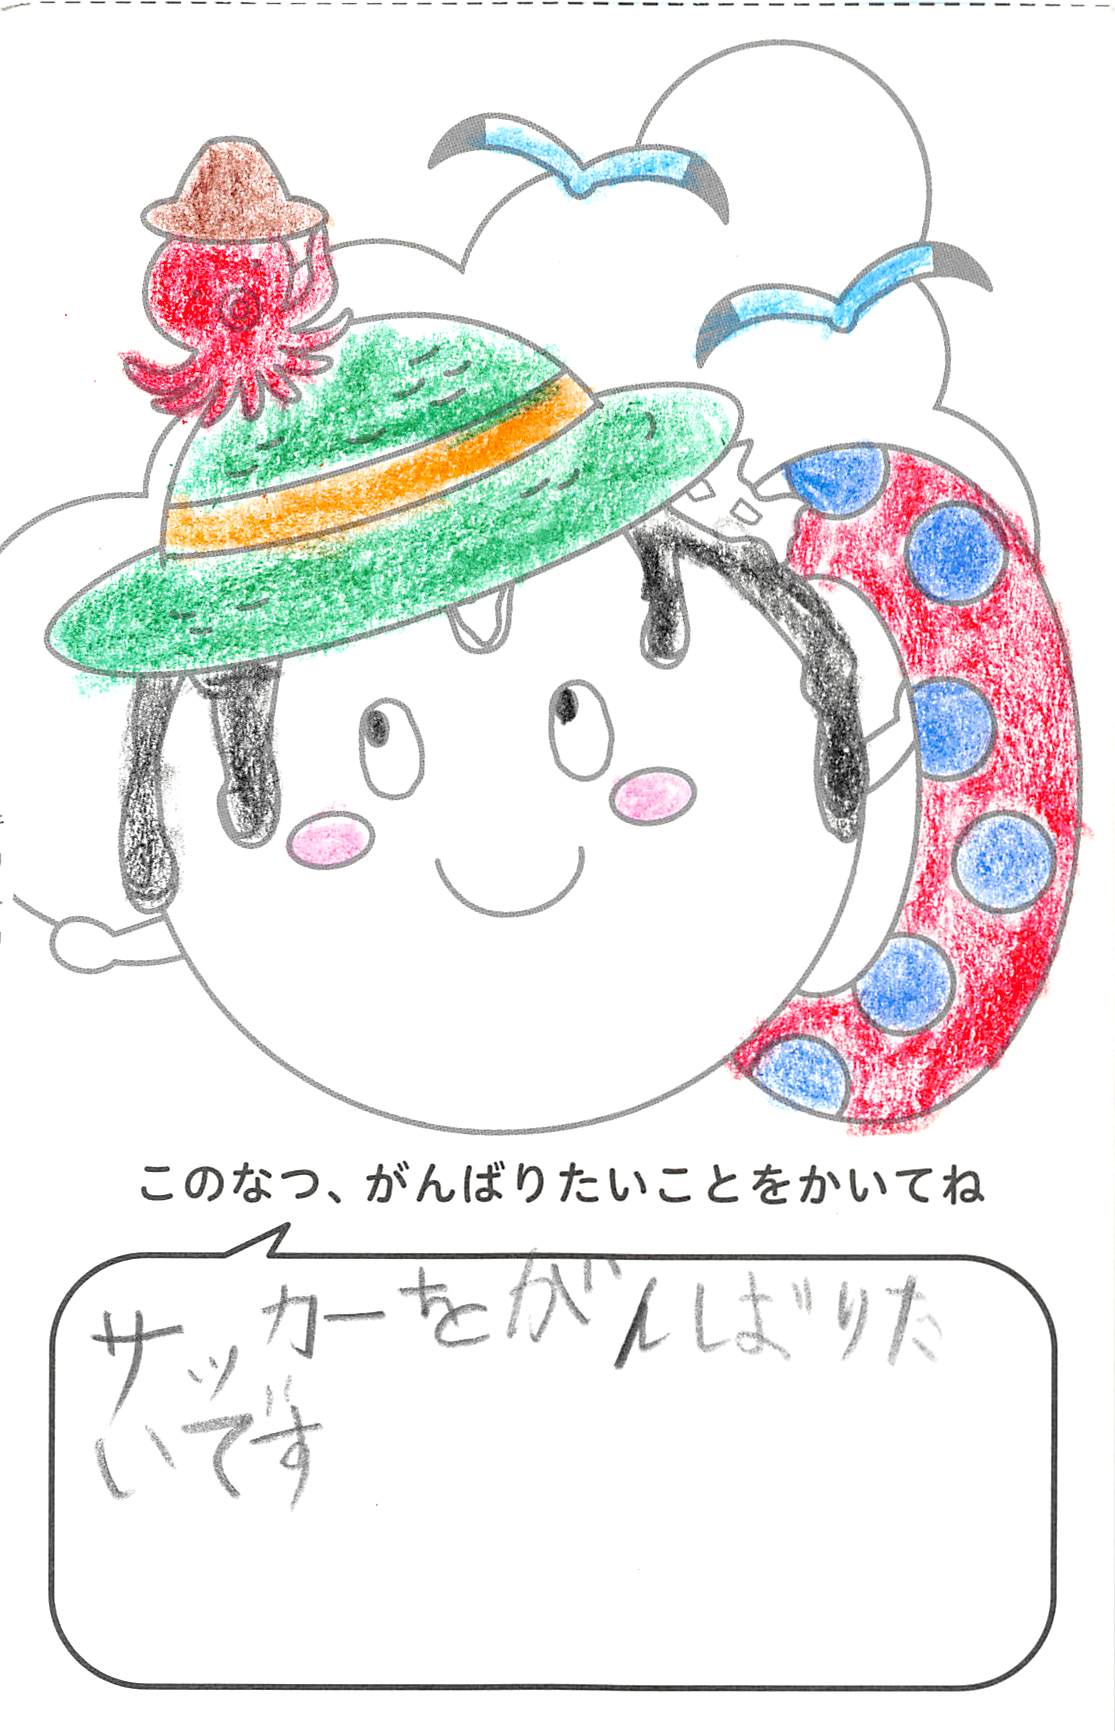 このなつ、がんばりたいことをかいてね
サッカーをがんばりた
いです